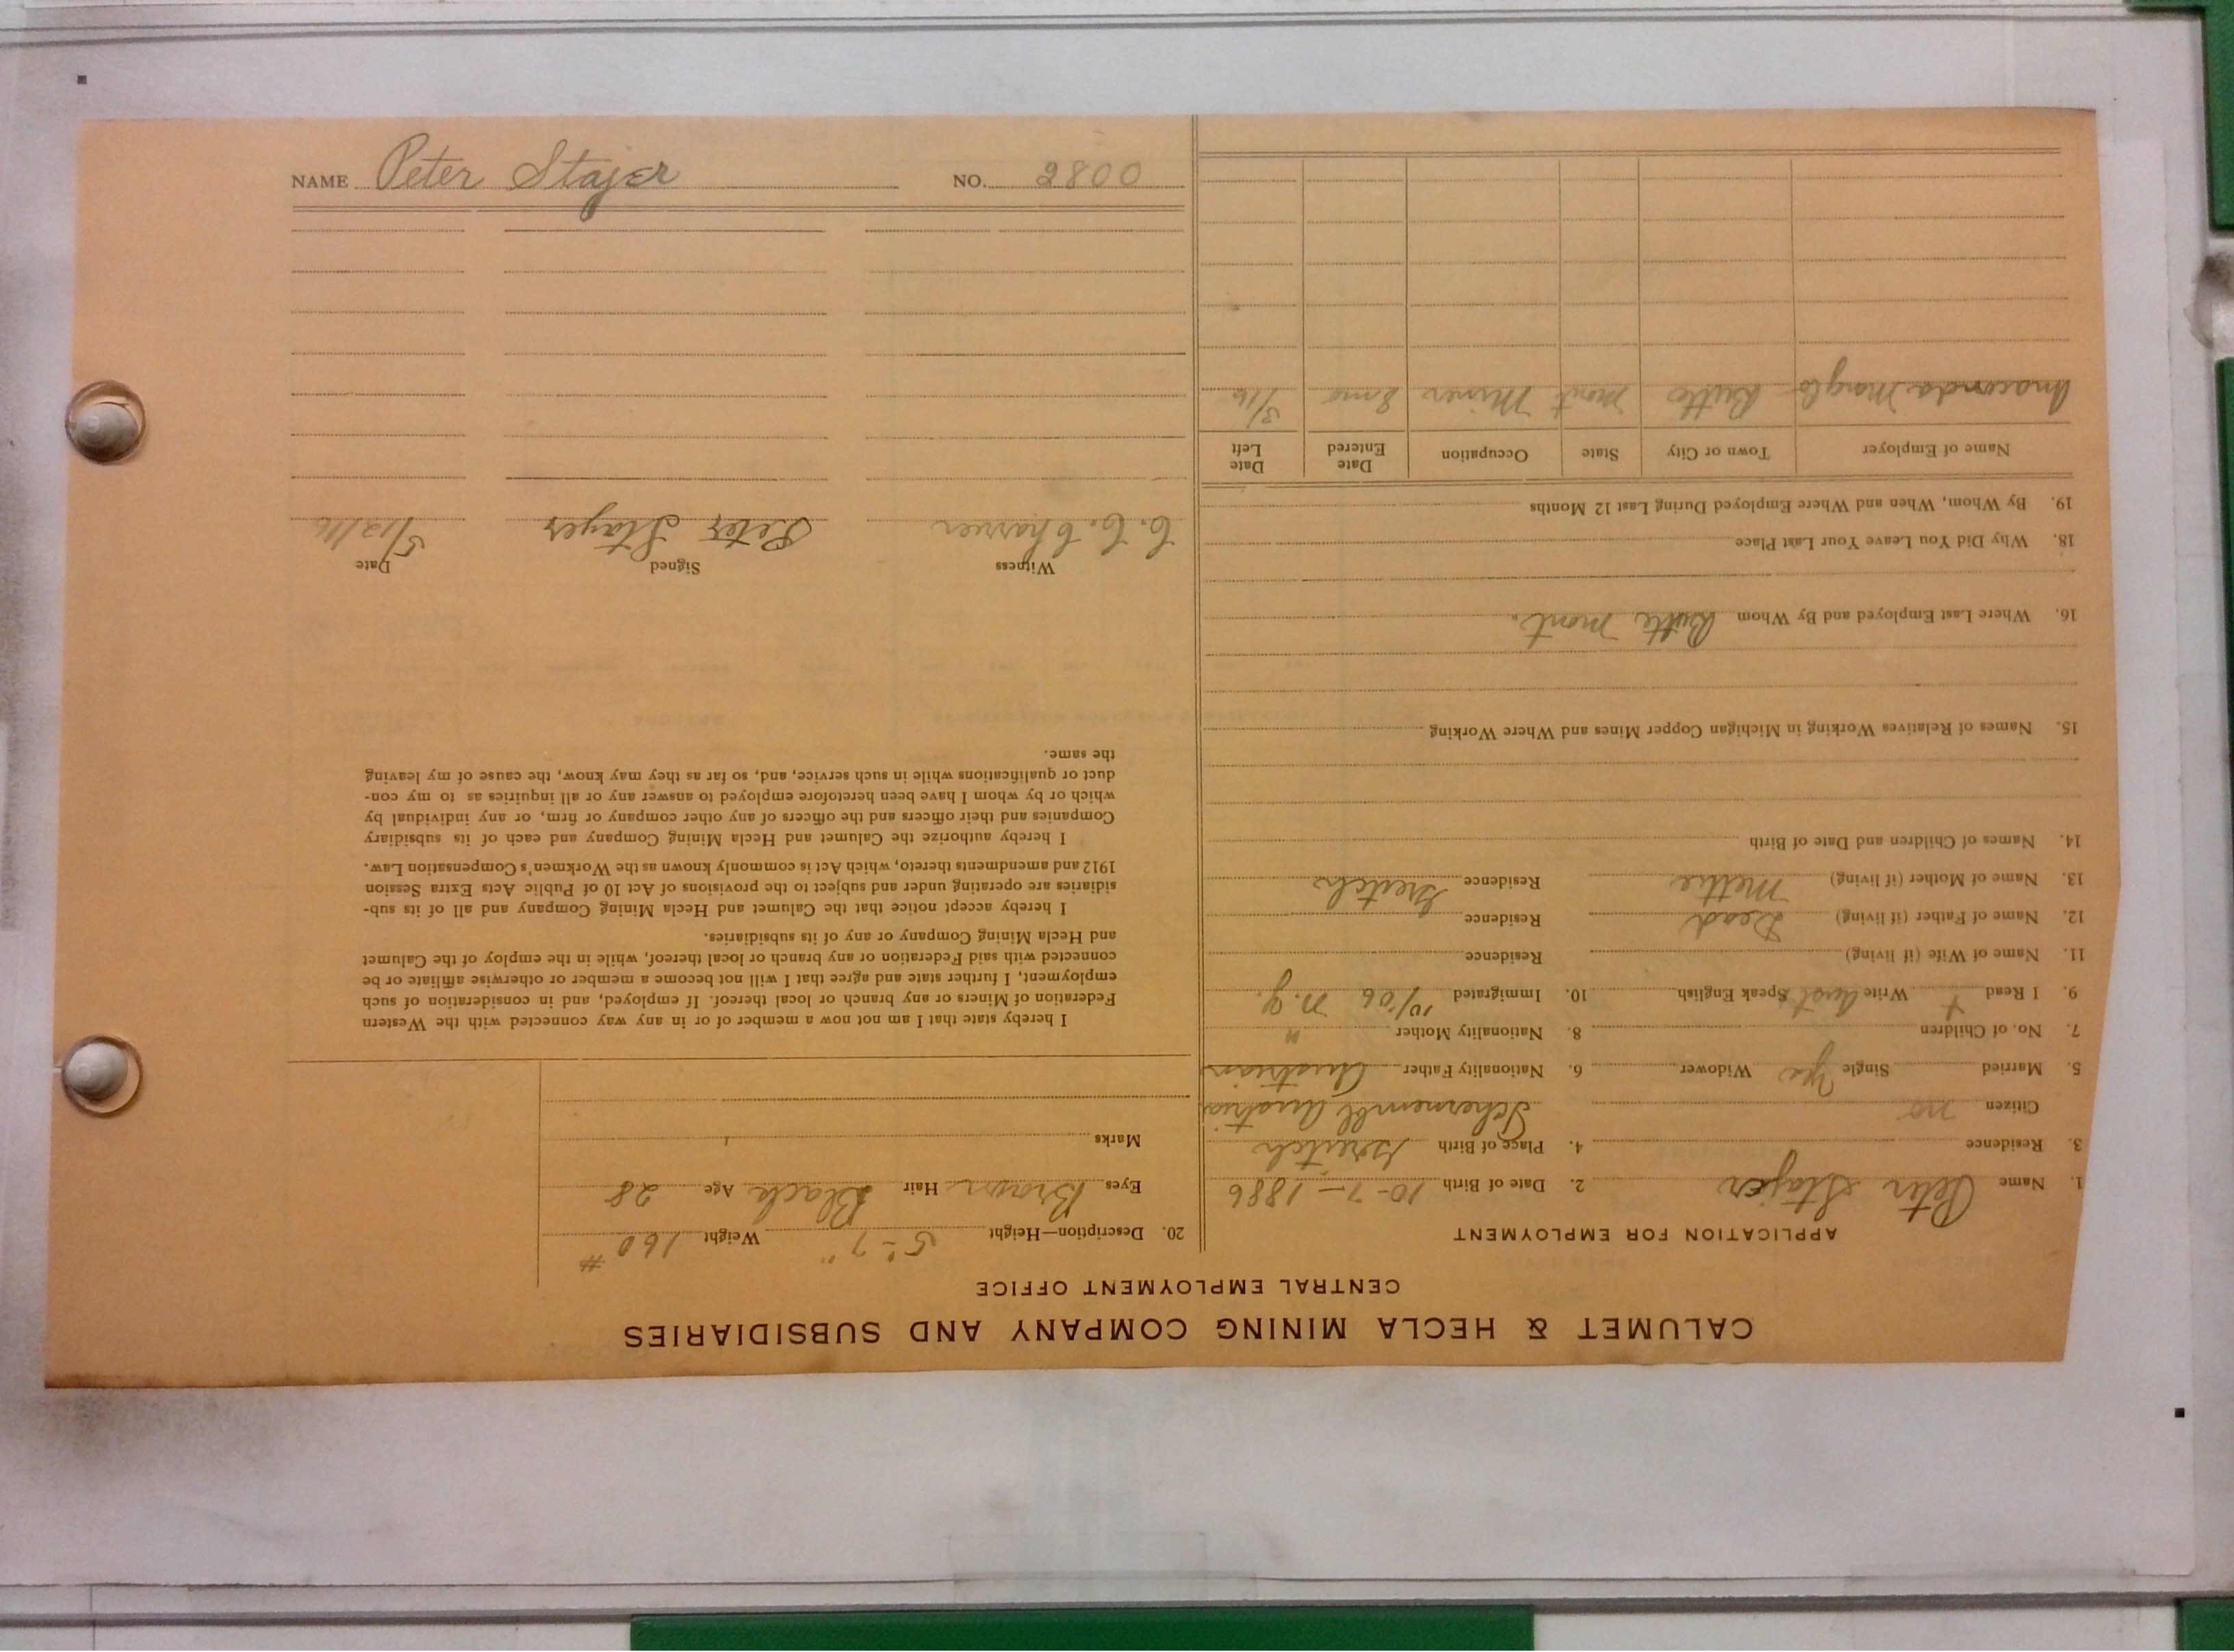 NAME Peter Stajer NO. 2800
CALUMET & HECLA MINING COMPANY AND SUBSIDIARIES
CENTRAL EMPLOYMENT OFFICE
APPLICATION FOR EMPLOYMENT
1. Name Peter Stajer 2. Date of Birth 10-7-1886
3. Residence 4. Place of Birth
Citizen no Austria
5. Married Single Yes Widower 6. Nationality Father Austrian
7. No. of Children 8. Nationality Mother "
9. I Read Write Aust Speak English 10. Immigrated 10/06 n.y.
11. Name of Wife (if living) Residence
12. Name of Father (if living) Dead Residence
13. Name of Mother (if living) Residence
14. Names of Children and Date of Birth
15. Names of Relatives Working in Michigan Copper Mines and Where Working
16. Where Last Employed and By Whom Butte Mont.
18. Why Did You Leave Your Last Place
19. By Whom, When and Where Employed During Last 12 Months
Name of Employer Town or City State Occupation Date Entered Date Left
Anaconda Butte Mont Miner 3/16
20. Description—Height 5°-7" Weight 160 #
Eyes Brown Hair Black Age 28
Marks
I hereby state that I am not now a member of or in any way connected with the Western
Federation of Miners or any branch or local thereof. If employed, and in consideration of such
employment, I further state and agree that I will not become a member or otherwise affiliate or be
connected with said Federation or any branch or local thereof, while in the employ of the Calumet
and Hecla Mining Company or any of its subsidiaries.
I hereby accept notice that the Calumet and Hecla Mining Company and all of its sub-
sidiaries are operating under and subject to the provisions of Act 10 of Public Acts Extra Session
1912 and amendments thereto, which Act is commonly known as the Workmen's Compensation Law.
I hereby authorize the Calumet and Hecla Mining Company and each of its subsidiary
Companies and their officers and the officers of any other company or firm, or any individual by
which or by whom I have been heretofore employed to answer any or all inquiries as to my con-
duct or qualifications while in such service, and, so far as they may know, the cause of my leaving
the same.
Witness Signed Date
Peter Stajer 5/12/16